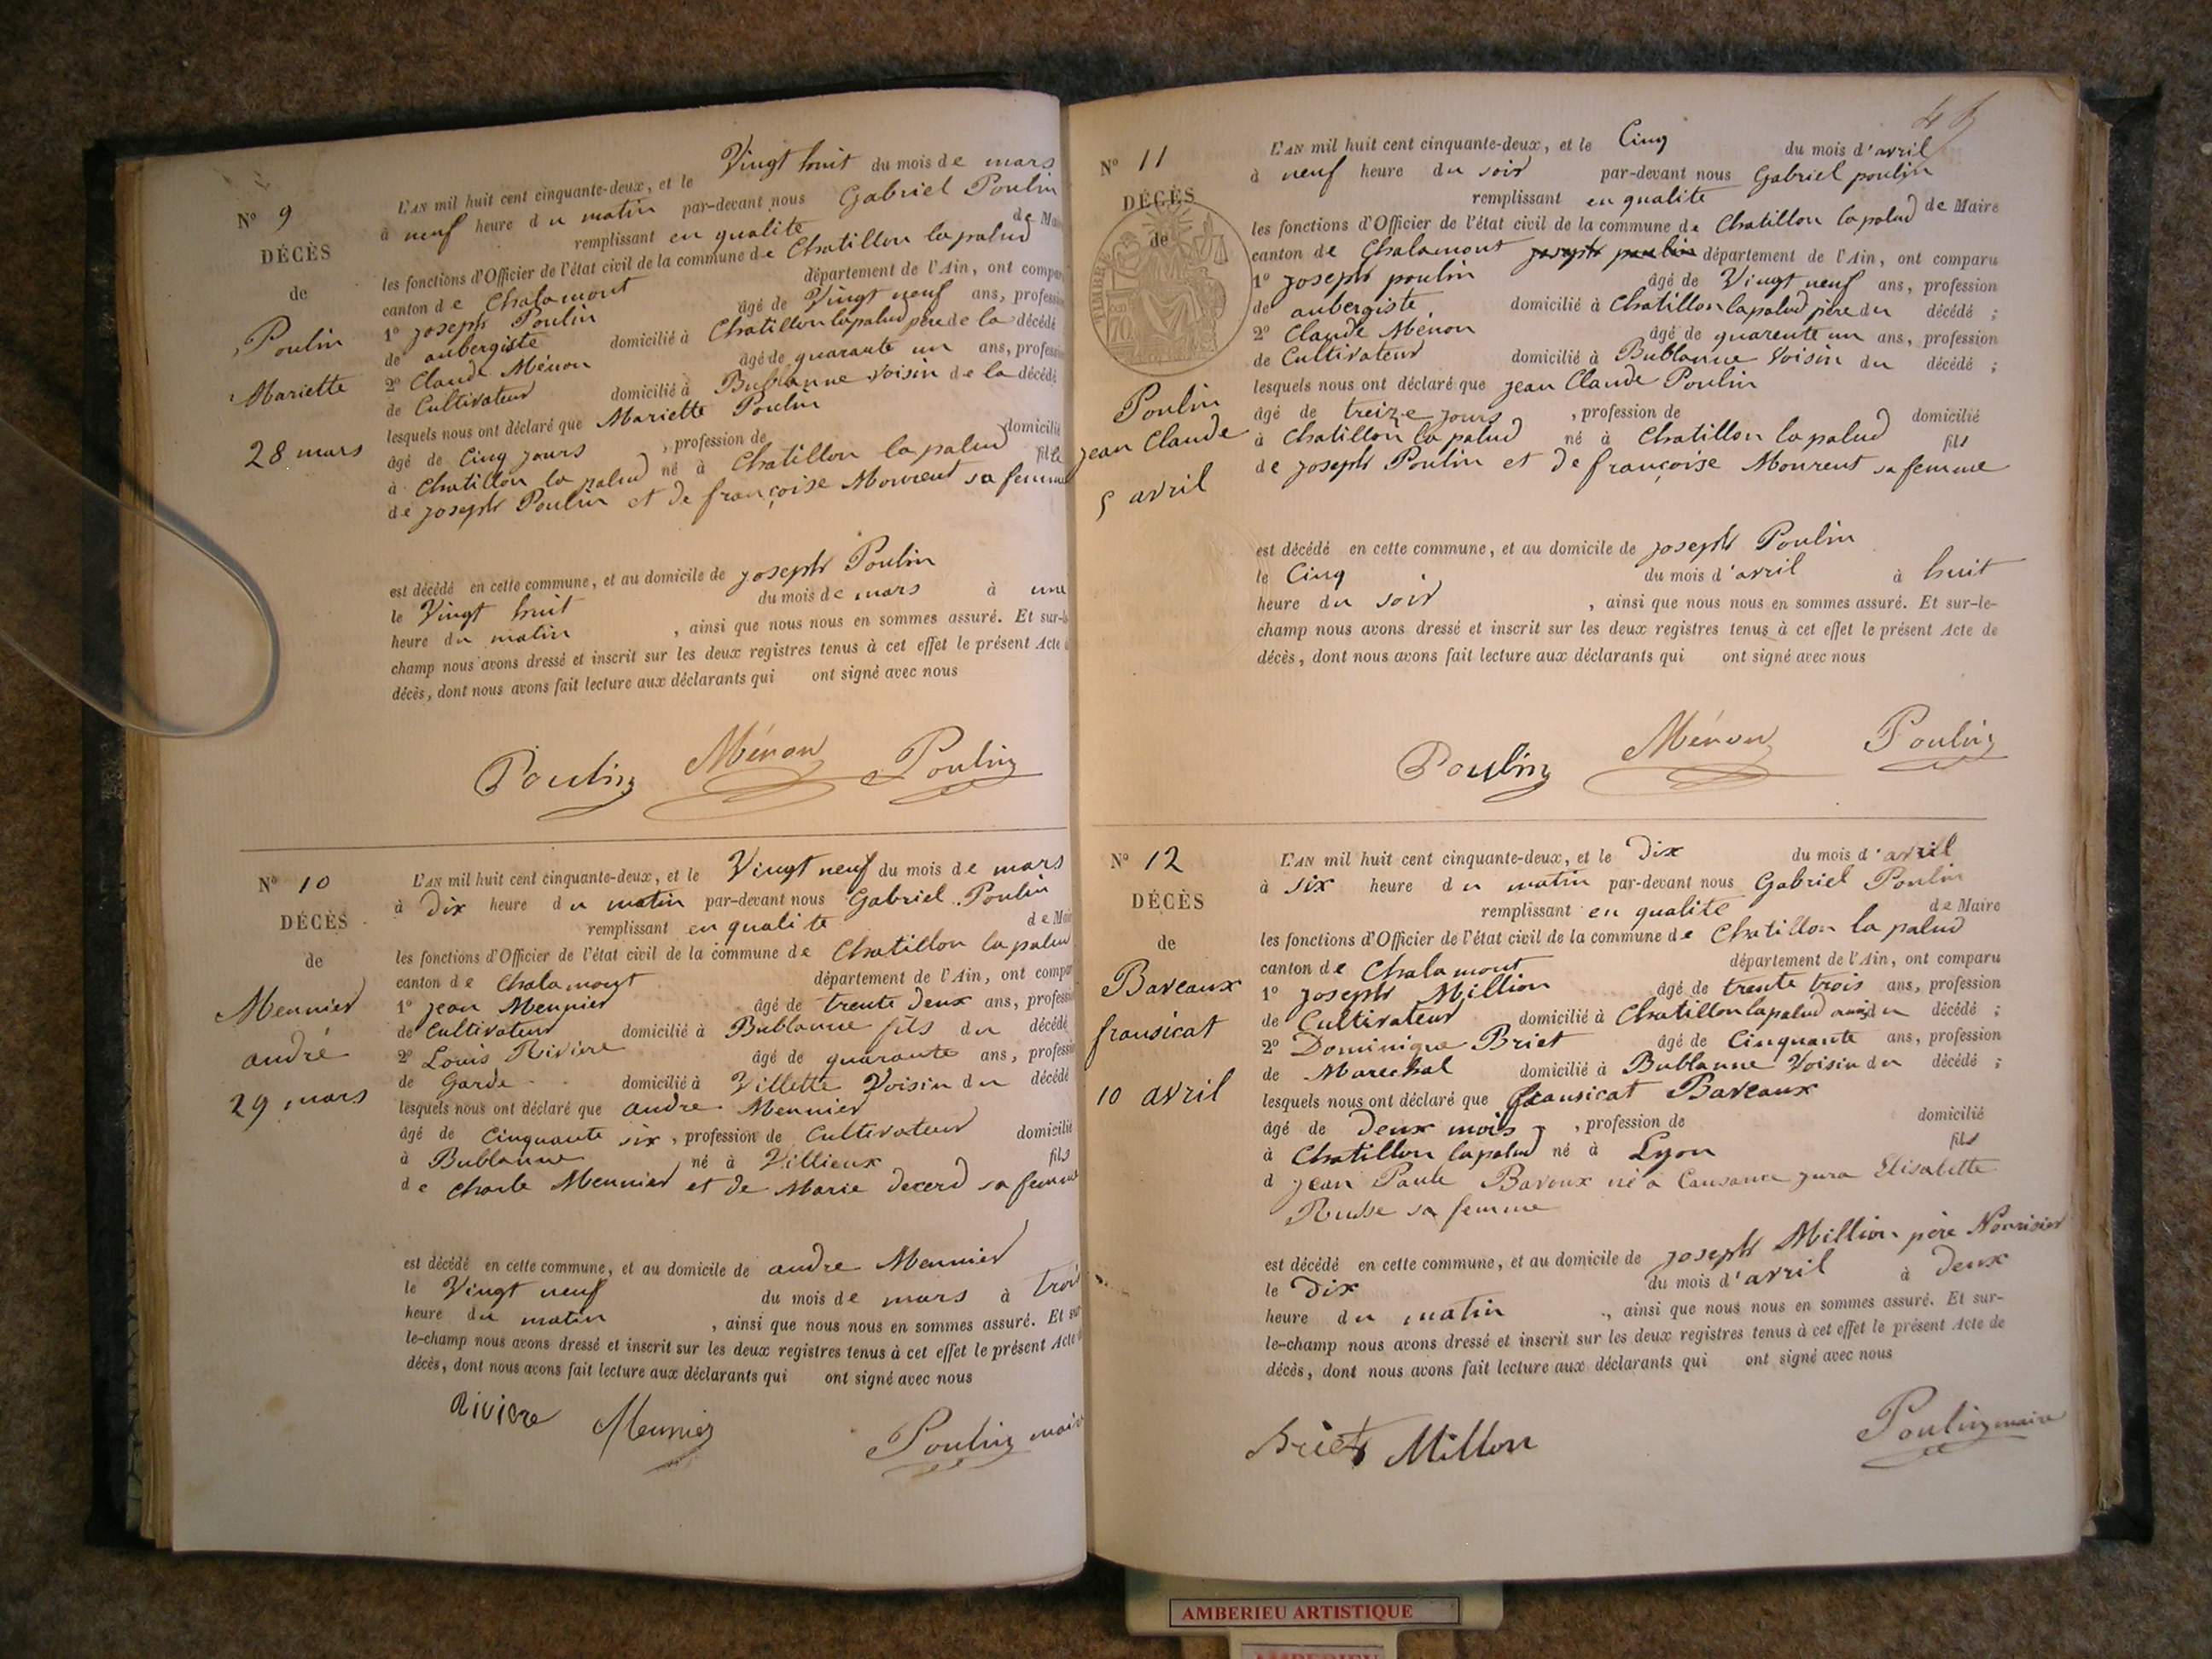 N° 9
DÉCÈS
de
Poulin
Mariette
28 mars
L'AN mil huit cent cinquante-deux, et le Vingt huit du mois de mars
à neuf heure du matin par-devant nous Gabriel Poulin
remplissant en qualité de Mai
les fonctions d'Officier de l'état civil de la commune de Chatillon la palud
canton de Chalamont département de l'Ain, ont compar
1° joseph Poulin âgé de Vingt neuf ans, profession
de aubergiste domicilié à Chatillon lapalud père de la décédé
2° Claude Ménon âgé de quarante un ans, profession
de Cultivateur domicilié à Bublanne Voisin de la décédé
lesquels nous ont déclaré que Mariette Poulin
âgé de Cinq jours , profession de domicilié
à Chatillon la palud né à Chatillon la palud fille
de joseph Poulin et de françoise Mourent sa femme
est décédé en cette commune, et au domicile de joseph Poulin
le Vingt huit du mois de mars à une
heure du matin , ainsi que nous nous en sommes assuré. Et sur-le
champ nous avons dressé et inscrit sur les deux registres tenus à cet effet le présent Acte
décès, dont nous avons fait lecture aux déclarants qui ont signé avec nous
Poulin Ménon Poulin
N° 10
DÉCÈS
de
Meunier
andré
29 mars
L'AN mil huit cent cinquante-deux, et le Vingt neuf du mois de mars
à Dix heure du matin par-devant nous Gabriel Poulin
remplissant en qualite de Mai
les fonctions d'Officier de l'état civil de la commune de Chatillon la palud
canton de Chalamont département de l'Ain, ont compar
1° jean Meunier âgé de trente Deux ans, profession
de Cultivateur domicilié à Bublanne fils du décédé
2° Louis Riviere âgé de quarante ans, profession
de Garde domicilié à Villette Voisin du décédé
lesquels nous ont déclaré que andre Meunier
âgé de Cinquante six , profession de Cultivateur domicilié
à Bublanne né à Villieux fils
de Charle Meunier et de Marie decerd sa femme
est décédé en cette commune, et au domicile de andre Meunier
le Vingt neuf du mois de mars à trois
heure du matin , ainsi que nous nous en sommes assuré. Et sur
le-champ nous avons dressé et inscrit sur les deux registres tenus à cet effet le présent Acte
décès, dont nous avons fait lecture aux déclarants qui ont signé avec nous
Riviere Meunier Poulin maire
N° 11
DÉCÈS
de
TIMBRE
Poulin
jean Claude
5 avril
L'AN mil huit cent cinquante-deux, et le Cinq du mois d'avril
à neuf heure du soir par-devant nous Gabriel poulin
remplissant en qualité de Maire
les fonctions d'Officier de l'état civil de la commune de Chatillon la palud
canton de Chalamont joseph poulin département de l'Ain, ont comparu
1° joseph poulin âgé de Vingt neuf ans, profession
de aubergiste domicilié à Chatillon lapalud père du décédé ;
2° Claude Ménon âgé de quarente un ans, profession
de Cultivateur domicilié à Bublanne Voisin du décédé ;
lesquels nous ont déclaré que jean Claude Poulin
âgé de treize jours , profession de domicilié
à Chatillon la palud né à Chatillon la palud fils
de joseph Poulin et de françoise Mourent sa femme
est décédé en cette commune, et au domicile de joseph Poulin
le Cinq du mois d'avril à huit
heure du soir , ainsi que nous nous en sommes assuré. Et sur-le-
champ nous avons dressé et inscrit sur les deux registres tenus à cet effet le présent Acte de
décès, dont nous avons fait lecture aux déclarants qui ont signé avec nous
Poulin Ménon Poulin
N° 12
DÉCÈS
de
Baveaux
fransicat
10 avril
L'AN mil huit cent cinquante-deux, et le Dix du mois d'avril
à six heure du matin par-devant nous Gabriel Poulin
remplissant en qualite de Maire
les fonctions d'Officier de l'état civil de la commune de Chatillon la palud
canton de Chalamont département de l'Ain, ont comparu
1° joseph Million âgé de trente trois ans, profession
de Cultivateur domicilié à Chatillon lapalud ami du décédé ;
2° Dominique Briet âgé de Cinquante ans, profession
de Marechal domicilié à Bublanne Voisin du décédé ;
lesquels nous ont déclaré que fransicat Baveaux
âgé de Deux mois , profession de domicilié
à Chatillon lapalud né à Lyon fils
d jean Paule Bavoux né a Cousance jura Elisabette
Russe sa femme
est décédé en cette commune, et au domicile de joseph Million père Nourisier
le Dix du mois d'avril à Deux
heure du matin , ainsi que nous nous en sommes assuré. Et sur-
le-champ nous avons dressé et inscrit sur les deux registres tenus à cet effet le présent Acte de
décès, dont nous avons fait lecture aux déclarants qui ont signé avec nous
Briet Millon Poulin maire
AMBERIEU ARTISTIQUE
AMBERIEU